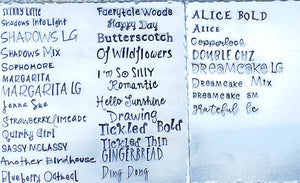 Skinny Latte
Shadows Into Light
SHADOWS LG
SHADOWS MIX
SOPHOMORE
MARGARITA
MARGARITA LG
Jenna Sue
Strawberry Limeade
Quirky Girl
SASSY MCLASSY
Another Birdhouse
Blueberry Oatmeal
Fairytale Woods
Happy Day
Butterscotch
Of Wildflowers
I'm So SILLY
Romantic
Hello Sunshine
Drawing
Tickled Bold
Tickled Thin
GINGERBREAD
Ding Dong
ALICE BOLD
Alice
Copperlock
DOUBLE CHZ
DREAMCAKE LG
DREAMCAKE MIX
DREAMCAKE SM
grateful lc